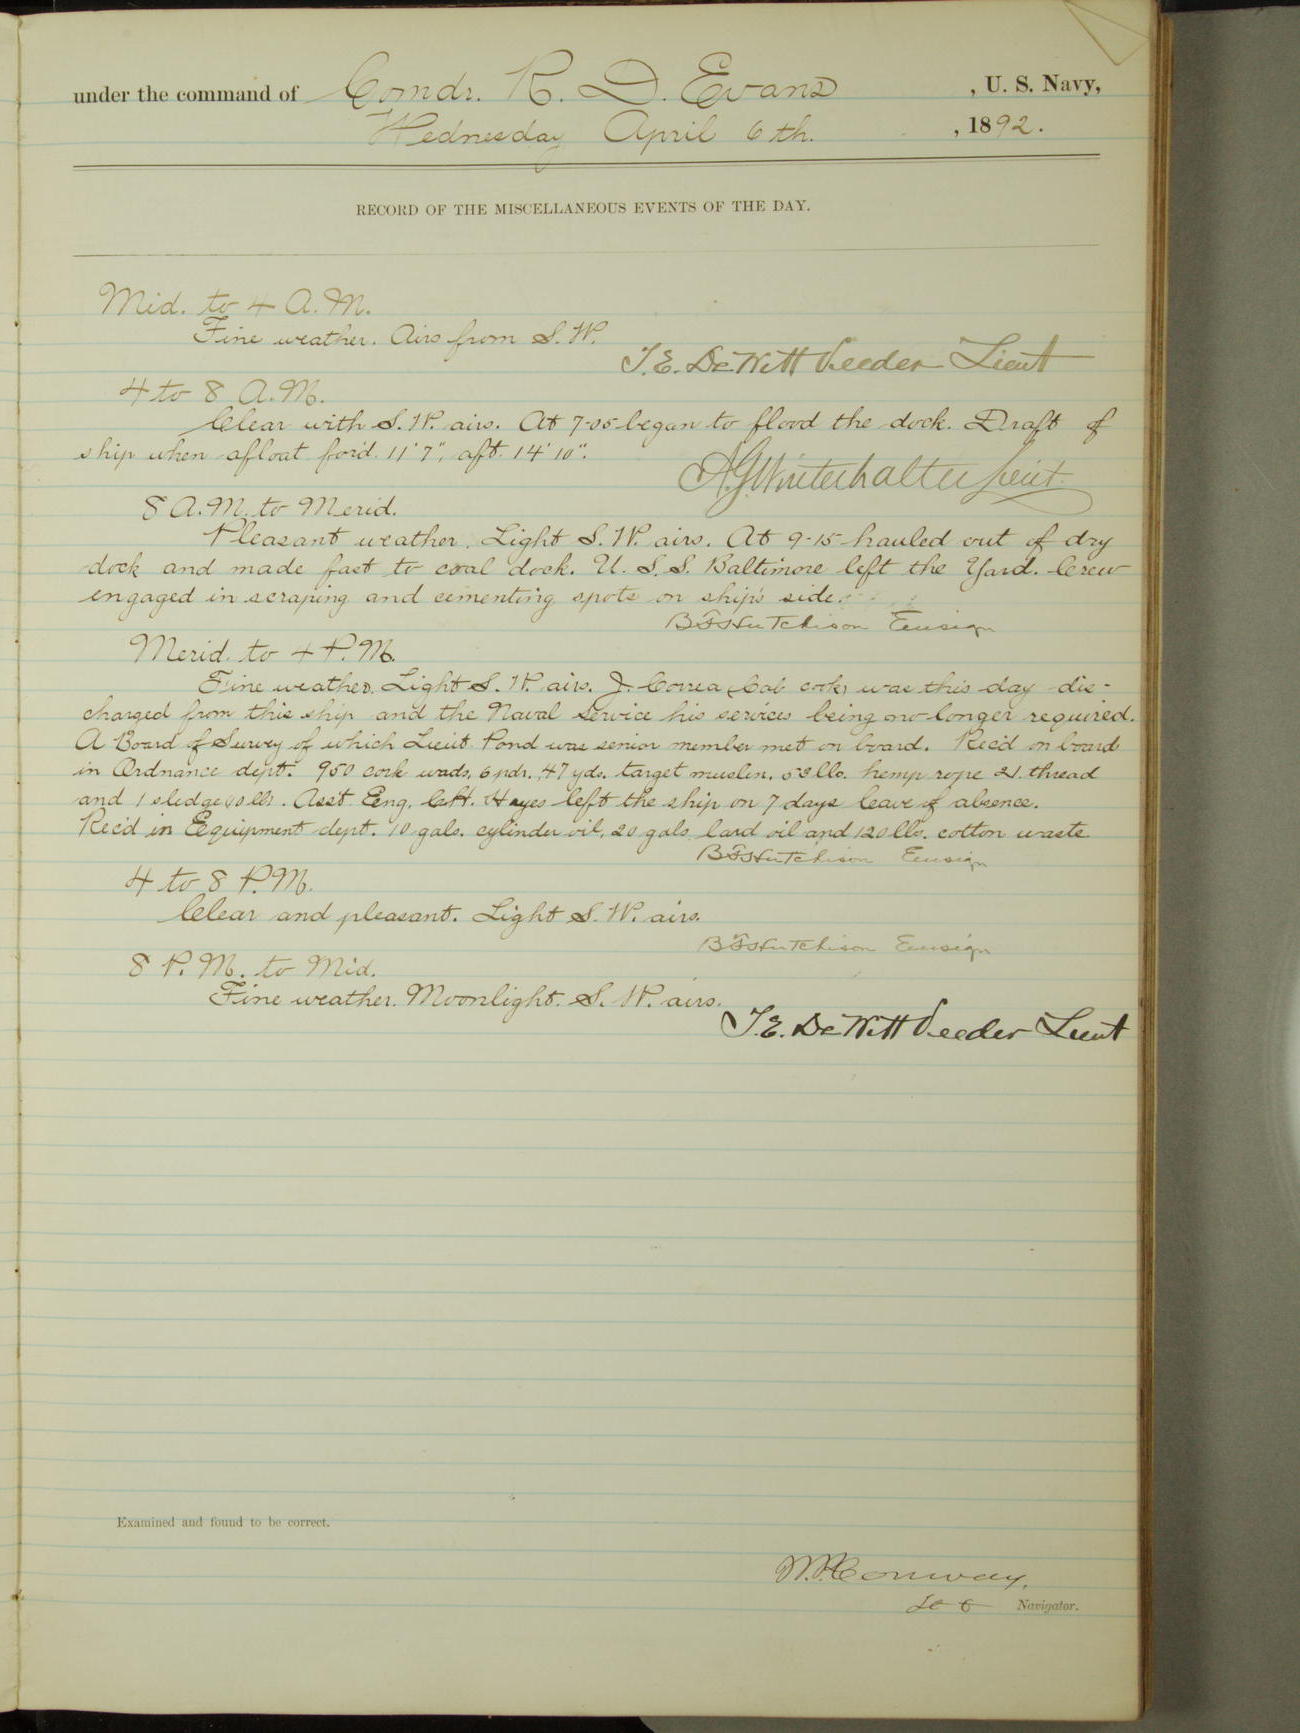 under the command of Comdr. R. D. Evans , U. S. Navy,
Wednesday April 6th. , 1892.
RECORD OF THE MISCELLANEOUS EVENTS OF THE DAY.
Mid. to 4 A.M.
Fine weather. Airs from S.W.
T.E. DeWitt Veeder Lieut
4 to 8 A.M.
Clear with S.W. airs. At 7-05 began to flood the dock. Draft of
ship when afloat for'd. 11' 7", aft. 14' 10".
A.G. Winterhalter Lieut.
8 A.M. to Merid.
Pleasant weather. Light S.W. airs. At 9-15 hauled out of dry
dock and made fast to coal dock. U.S.S. Baltimore left the Yard. Crew
engaged in scraping and cementing spots on ship's side.
B F Hutchison Ensign
Merid. to 4 P.M.
Fine weather. Light S.W. airs. J. Correa (Cab cook) was this day dis-
charged from this ship and the Naval Service his services being no longer required.
A Board of Survey of which Lieut Pond was senior member met on board. Rec'd on board
in Ordnance dept. 950 cork wads, 6 pdr., 47 yds. target muslin, lbs. hemp rope 21 thread
and 1 sledge 10 lbs. Ass't Eng. C.H. Hayes left the ship on 7 days leave of absence.
Rec'd in Equipment dept. 10 gals. cylinder oil, 20 gals. lard oil and 120 lbs. cotton waste
B F Hutchison Ensign
4 to 8 P.M.
Clear and pleasant. Light S.W. airs.
B F Hutchison Ensign
8 P.M. to Mid.
Fine weather. Moonlight. S.W. airs.
T.E. DeWitt Veeder Lieut
Examined and found to be correct.
W.P. Conway,
Navigator.